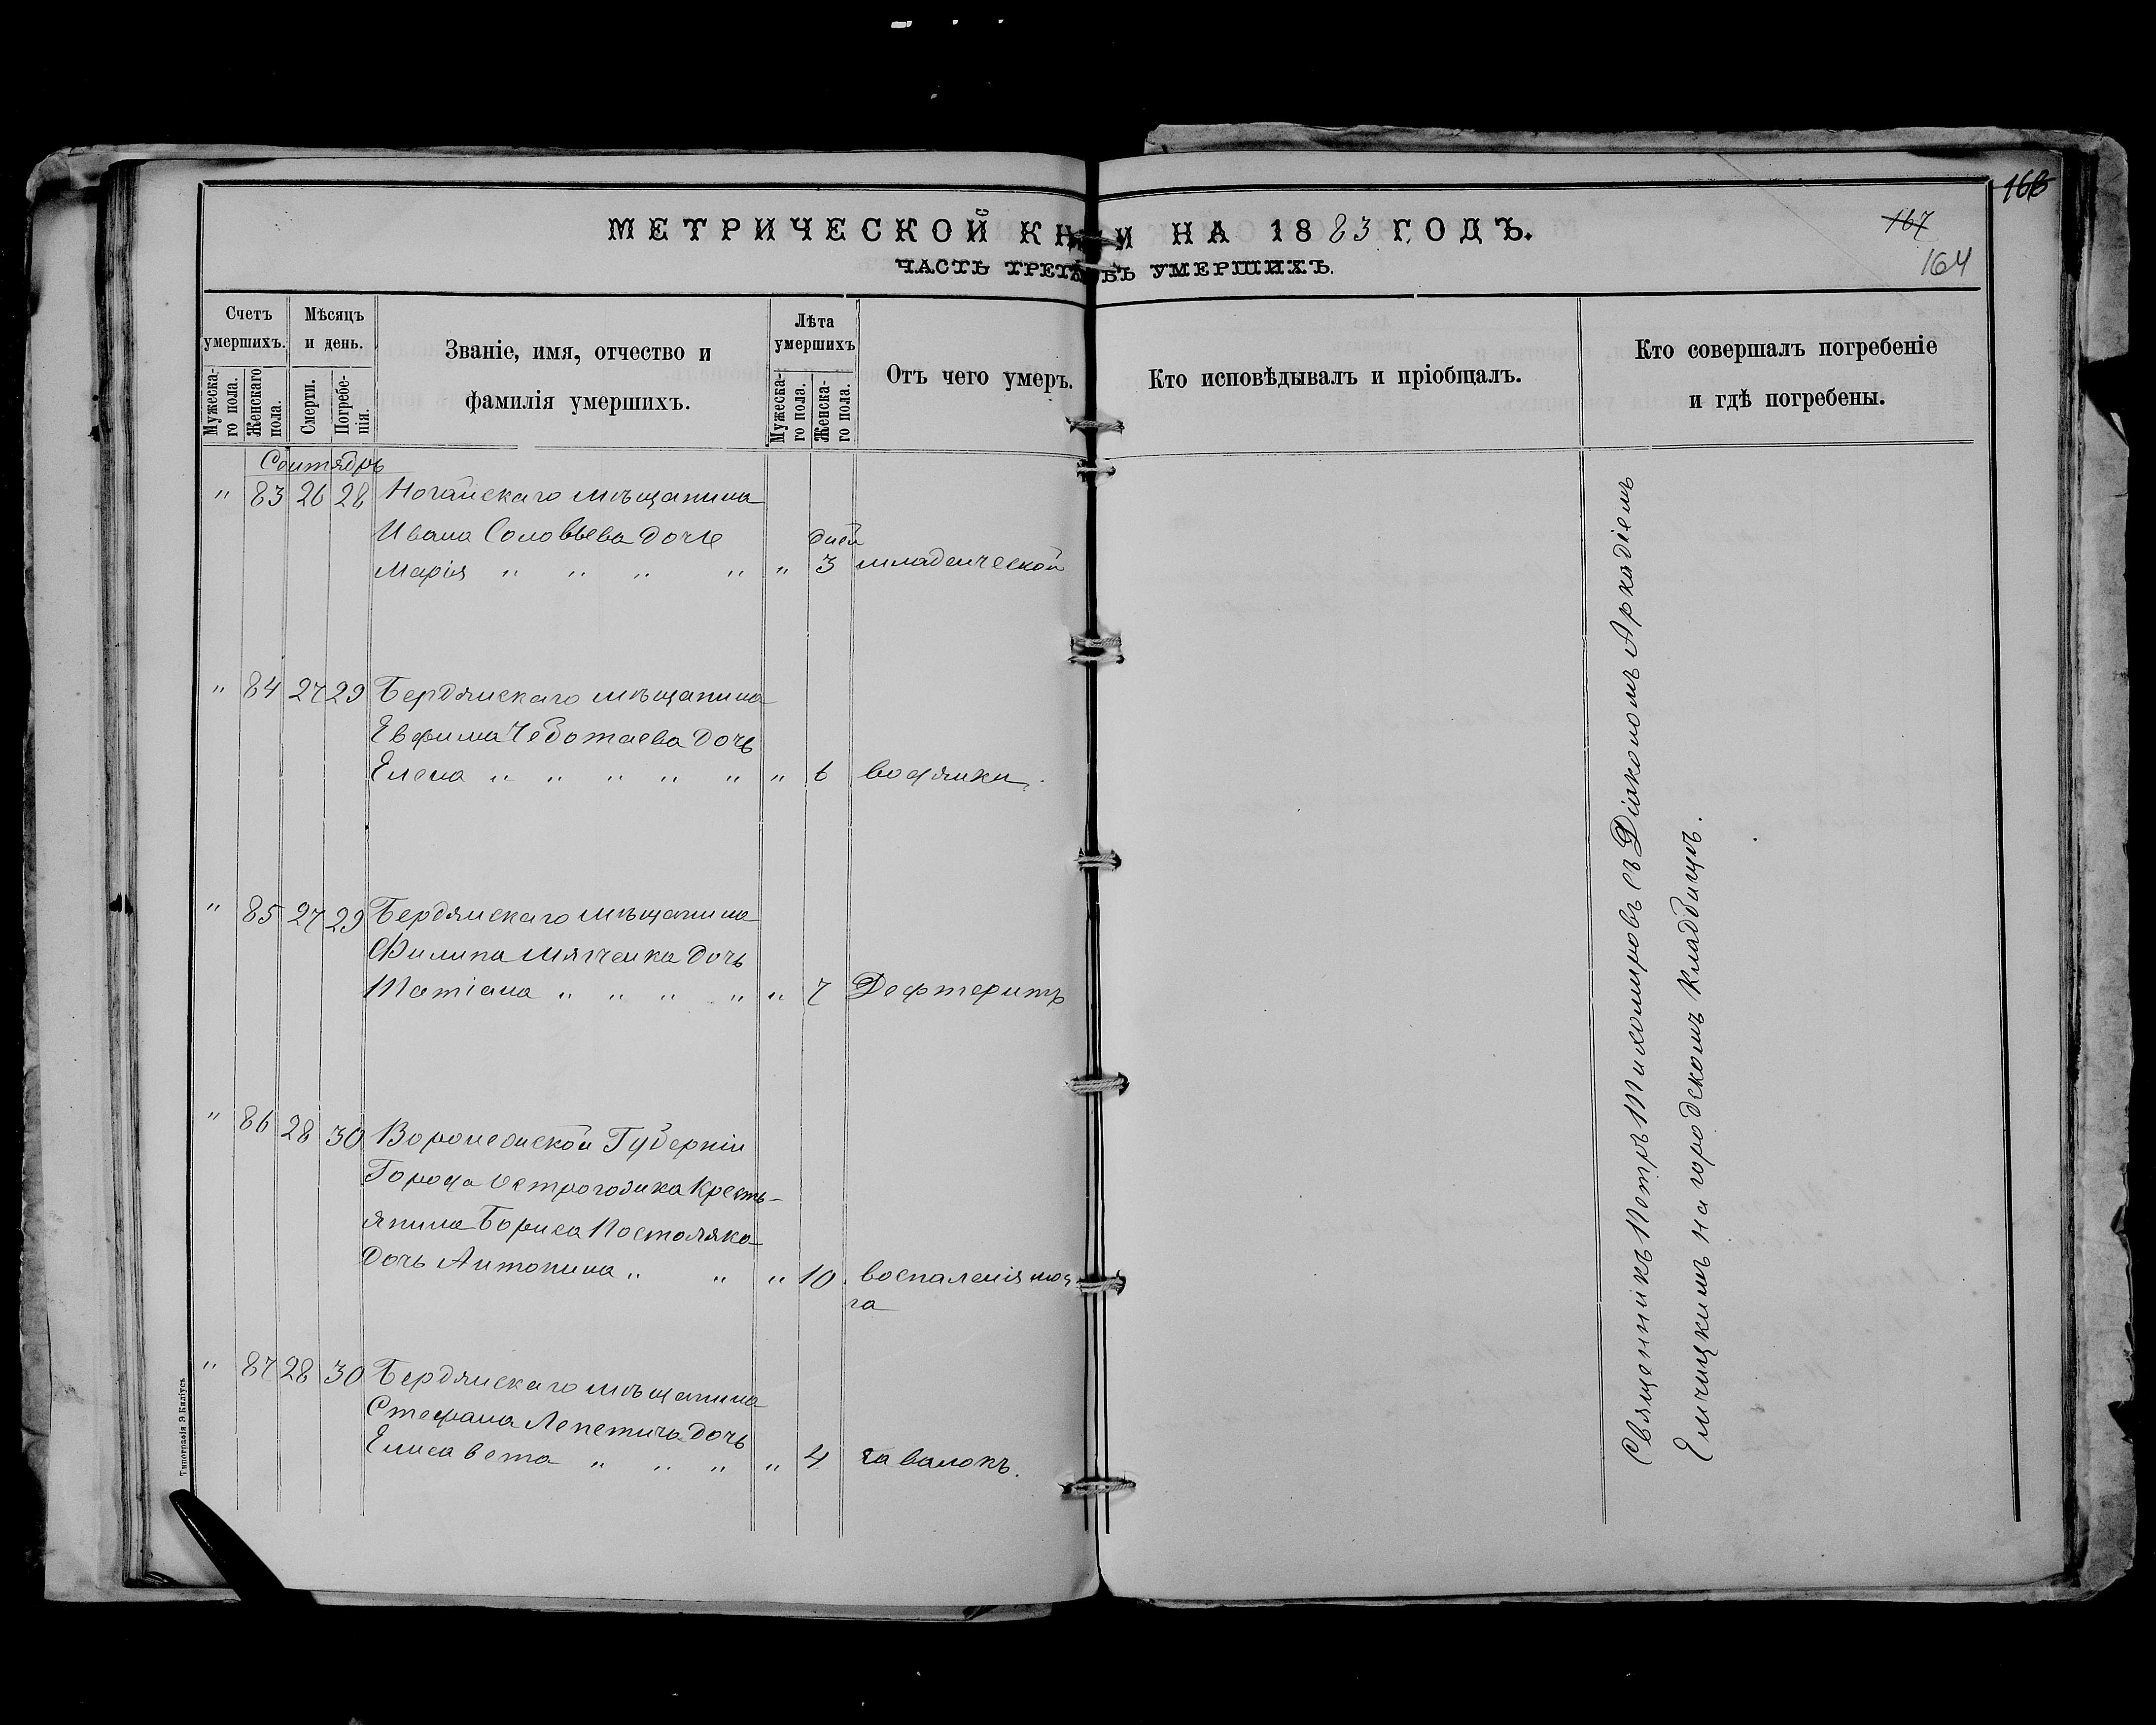 168
167
164
МЕТРИЧЕСКОЙ КНИ НА 1883 ГОДЪ.
ЧАСТЬ ТРЕТЬ УМЕРШИХЪ.
Счетъ умершихъ.
Мужеска-го пола.
Женскаго пола.
Мѣсяцъ и день.
Смерти.
Погребе-нія.
Званіе, имя, отчество и
фамилія умершихъ.
Лѣта умершихъ
Мужеска-го пола.
Женска-го пола.
Отъ чего умеръ.
Кто исповѣдывалъ и пріобщалъ.
Кто совершалъ погребеніе
и гдѣ погребены.
Сентябрь
" 83 26 28 Ногайскаго мѣщанина
Ивана Соловьева дочь дней
Марія " " " " " 3 младенческой
" 84 27 29 Бердянскаго мѣщанина
Евфима Чеботаева дочь
Елена " " " " " " 6 водянки.
" 85 27 29 Бердянскаго мѣщанина
Филипа дочь
Татіана " " " " " 7 Дефтеритъ
" 86 28 30 Воронежской Губерніи
Города Острогожска Кресть-
янина Бориса Постоляка
дочь Антонина " " " 10 воспаленія моз
га
" 87 28 30 Бердянскаго мѣщанина
Стефана Лепетича дочь
Елисавета " " " " 4 гавалокъ.
Священникъ Петръ Тихомировъ съ Діакономъ Аркадіемъ
Еличицкимъ на городскомъ кладбищѣ.
Типографія Э. Килиусъ